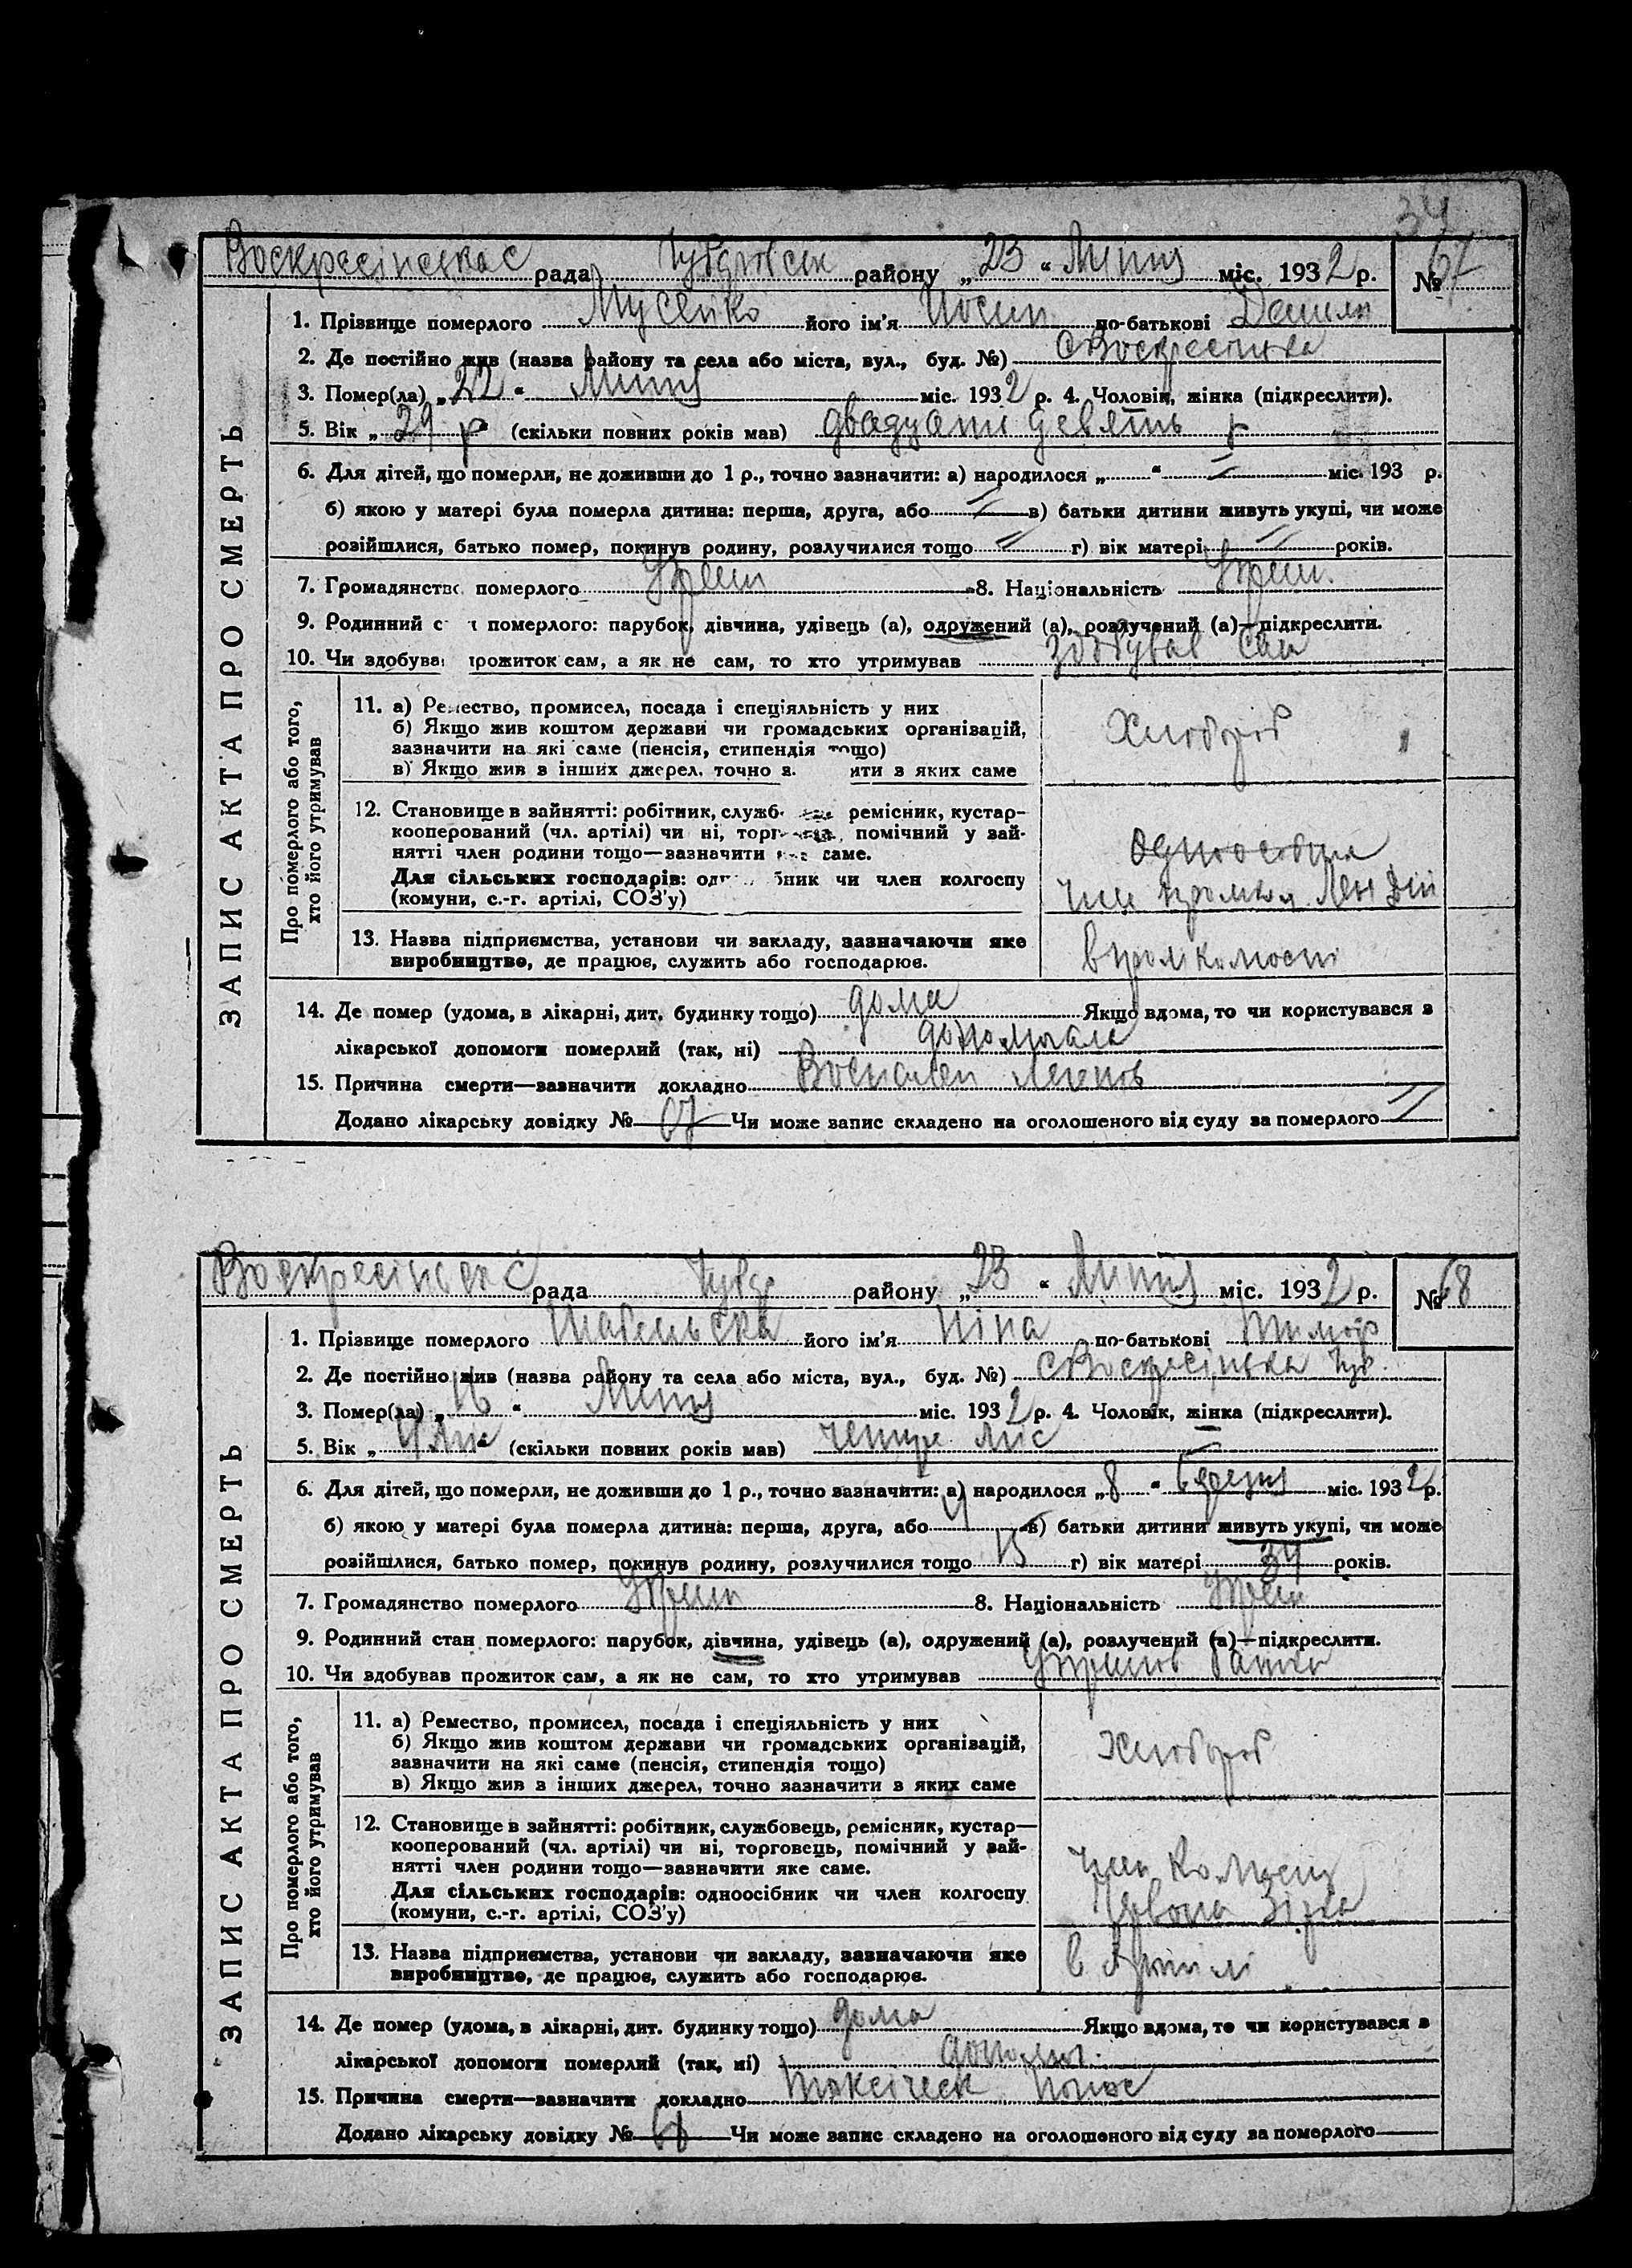 34
Воскресінська с рада Чубарівськ району „23“ Липня міс. 1932 р. № 67
1. Прізвище померлого Мусейко його ім'я Йосип по-батькові Данилів
2. Де постійно жив (назва району та села або міста, вул., буд. №) с Воскресінка
3. Помер(ла) „22“ Липня міс. 1932 р. 4. Чоловік, жінка (підкреслити).
5. Вік „29 р“ (скільки повних років мав) двадцать девять р
6. Для дітей, що померли, не доживши до 1 р., точно зазначити: а) народилося „ “ міс. 193 р.
б) якою у матері була померла дитина: перша, друга, або в) батьки дитини живуть укупі, чи може
розійшлися, батько помер, покинув родину, розлучилися тощо г) вік матері років.
7. Громадянство померлого Украін 8. Національність Украін.
9. Родинний с н померлого: парубок, дівчина, удівець (а), одружений (а), розлучений (а)—підкреслити.
10. Чи здобував прожиток сам, а як не сам, то хто утримував здобував сам
Про померлого або того, хто його утримував
11. а) Ремество, промисел, посада і спеціяльність у них
б) Якщо жив коштом держави чи громадських організацій,
зазначити на які саме (пенсія, стипендія тощо)
в) Якщо жив з інших джерел, точно з ити з яких саме
Хлібороб
12. Становище в зайнятті: робітник, служб ремісник, кустар-
кооперований (чл. артілі) чи ні, торг помічний у зай-
нятті член родини тощо—зазначити яке саме.
Для сільських господарів: од бник чи член колгоспу
(комуни, с.-г. артілі, СОЗ'у)
член
13. Назва підприємства, установи чи закладу, зазначаючи яке
виробництво, де працює, служить або господарює.
14. Де помер (удома, в лікарні, дит. будинку тощо) дома Якщо вдома, то чи користувався з
лікарської допомоги померлий (так, ні)
15. Причина смерти—зазначити докладно Воспален легенів
Додано лікарську довідку № 67 Чи може запис складено на оголошеного від суду за померлого
ЗАПИС АКТА ПРО СМЕРТЬ
Воскресінськ с рада Чубар району „23“ Липня міс. 1932 р. № 68
1. Прізвище померлого Шабельська його ім'я Ніна по-батькові Тимоф
2. Де постійно жив (назва району та села або міста, вул., буд. №) с Воскресінька Чуб.
3. Помер(ла) „16“ Липня міс. 1932 р. 4. Чоловік, жінка (підкреслити).
5. Вік „4 міс“ (скільки повних років мав) четире міс
6. Для дітей, що померли, не доживши до 1 р., точно зазначити: а) народилося „8“ березня міс. 1932 р.
б) якою у матері була померла дитина: перша, друга, або 4 в) батьки дитини живуть укупі, чи може
розійшлися, батько помер, покинув родину, розлучилися тощо г) вік матері 34 років.
7. Громадянство померлого Украін 8. Національність Украін
9. Родинний стан померлого: парубок, дівчина, удівець (а), одружений (а), розлучений (а)—підкреслити.
10. Чи здобував прожиток сам, а як не сам, то хто утримував батько
Про померлого або того, хто його утримував
11. а) Ремество, промисел, посада і спеціяльність у них
б) Якщо жив коштом держави чи громадських організацій,
зазначити на які саме (пенсія, стипендія тощо)
в) Якщо жив з інших джерел, точно зазначити з яких саме
Хлібороб
12. Становище в зайнятті: робітник, службовець, ремісник, кустар—
кооперований (чл. артілі) чи ні, торговець, помічний у зай-
нятті член родини тощо—зазначити яке саме.
Для сільських господарів: одноосібник чи член колгоспу
(комуни, с.-г. артілі, СОЗ'у)
член
Червона Зірка
13. Назва підприємства, установи чи закладу, зазначаючи яке
виробництво, де працює, служить або господарює.
в Артілі
14. Де помер (удома, в лікарні, дит. будинку тощо) дома Якщо вдома, то чи користувався з
лікарської допомоги померлий (так, ні)
15. Причина смерти—зазначити докладно Токсіческ понос
Додано лікарську довідку № 68 Чи може запис складено на оголошеного від суду за померлого
ЗАПИС АКТА ПРО СМЕРТЬ